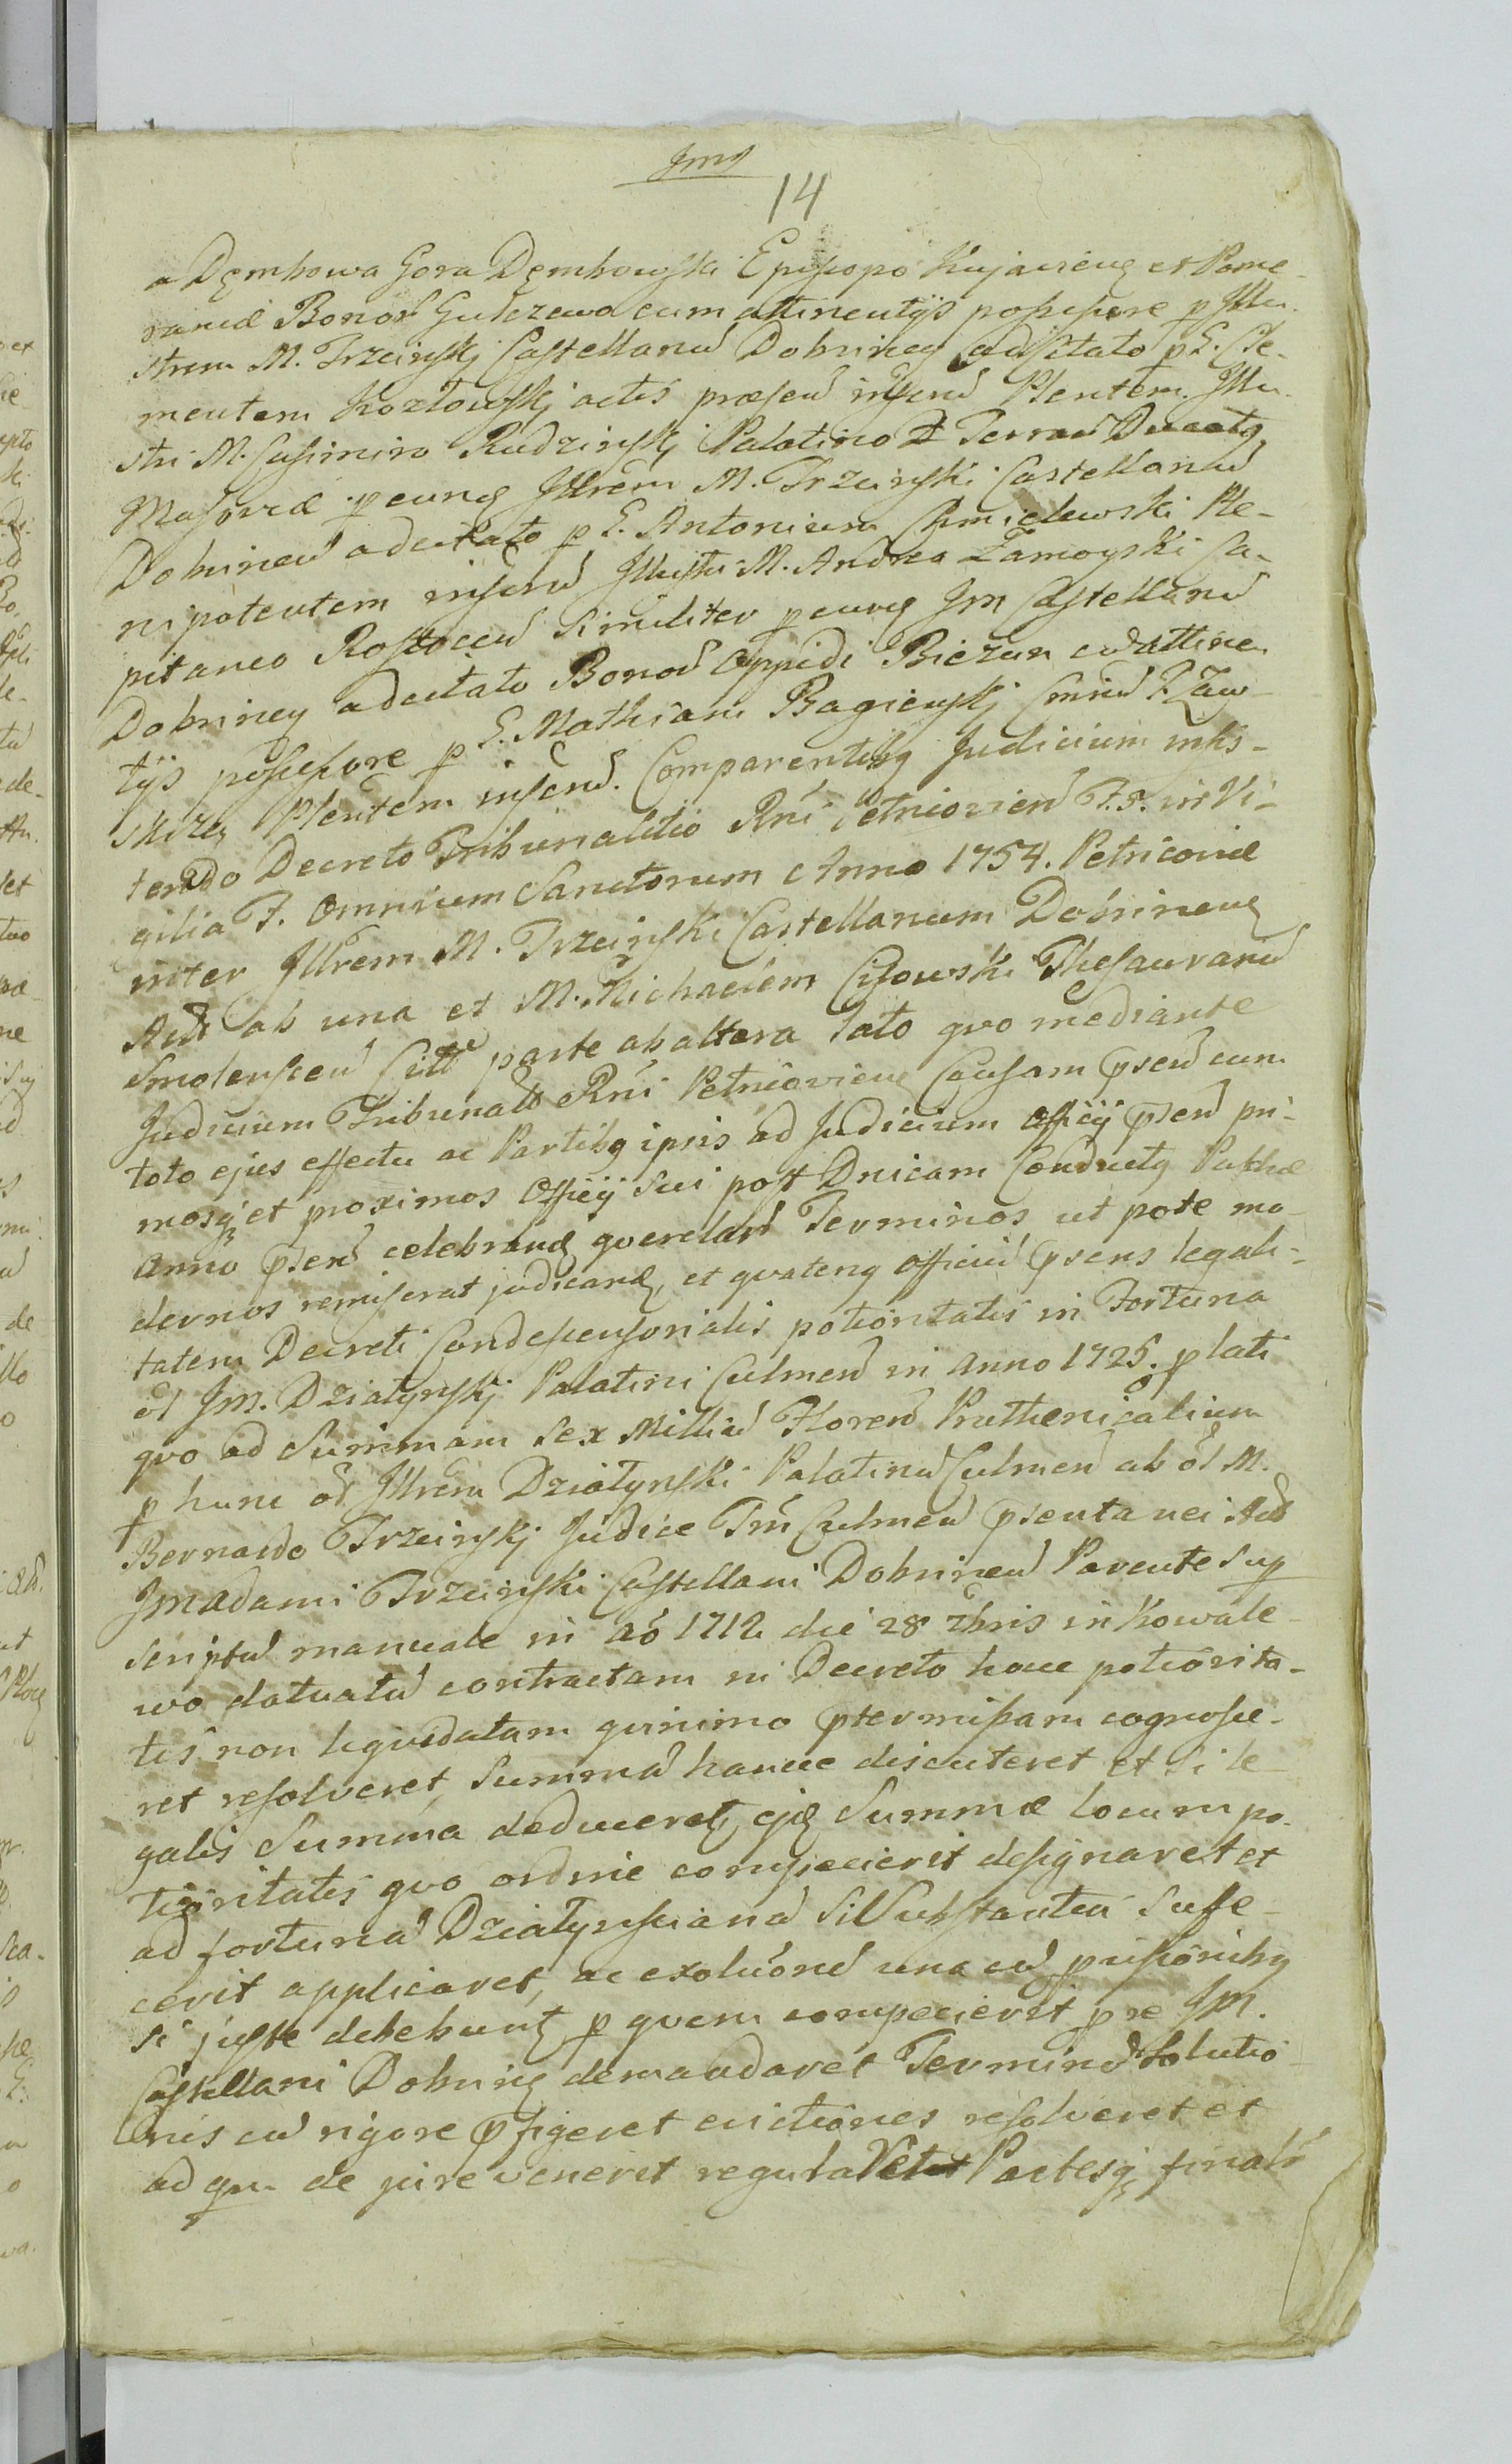 Jms
14
a Dęmbowa Gora Dęmbowski Episcopo Kujavieng et Pome-
raniæ Bonor Gulczewo cum attinentijs possessore p Illu-
strem M. Trzcinskj Castellanu Dobrineng adcitato p E. Cle-
mentem Kozłowskj actis præsen inseru Plentem. Illu-
stri M. Casimiro Rudzinskj Palatino Terrar Ducatg
Masoviæ p eung Illrem M. Trzcinski Castellanu
Dobrinen adcitato p E. Antonium Chmielewski Ple-
nipotentem inseru Illustri M. Andrea Zamoyski Ca-
pitaneo Rostocen similiter p eung Jm Castellanu
Dobrineng adcitato Bonor Oppidi Biezun cu attinen-
tijs possessore p E. Mathiam Bagienskj
Plentem inseru. Comparentibg Judicium inhæ-
rendo Decreto Tribunalitio Rni Petricovien F. 8. in Vi-
gilia F. Omnium Sanctorum Anno 1754. Petricoviæ
inter Illrem M. Trzcinski Castellanum Dobrineng
Act ab una et M. Michaelem Cissowski Thesaurariu
Smolenscen Citt parte ab altera lato qvo mediante
Judicium Tribunalit Rni Petricovieng Causam psen cum
toto ejus effectu ac Partibg ipsis ad Judicium Officij psen pri-
mosq et proximos Officij sui post Dnicam Conductg Paschæ
anno psen celebrand qverelar Terminos ut pote mo-
dernos remiserat judicand, et qvateng Officiu psens legali-
tatem Decreti Condescensorialis potioritatis in Fortuna
ol Jm. Działynskj Palatini Culmen in anno 1725. p lati
qvo ad Summam sex Milliu Floren Pruthenicalium
p hunc ol Illrem Działynski Palatinu Culmen ab ol M.
Bernardo Trzcinskj Judice Tri Culmen psentanei Act
Jm Adami Trzcinski Castellani Dobrinen Parente sup
scriptu manuale in ao 1712 die 28 Xbris in Kowale-
wo datuatu contractam in Decreto hoce potiorita-
tis non liqvidatam qvinimo ptermissam cognosce-
ret resolveret, Summa hance discuteret et si le-
galis Summa deduceret, ejg Summæ locum po-
tioritatis qvo ordine competierit designaret et
ad fortuna Działynsciana si Substantia suffe-
cerit applicaret, ac exolutione una cu provisionibg
si juste debebunt p qvem competierit pte Jm.
Castellani Dobrineng demandaret Terminu solutio-
nis cu rigore pfigeret evictiones resolveret et
ad qm de jure venerit regulavet Partesq finalr